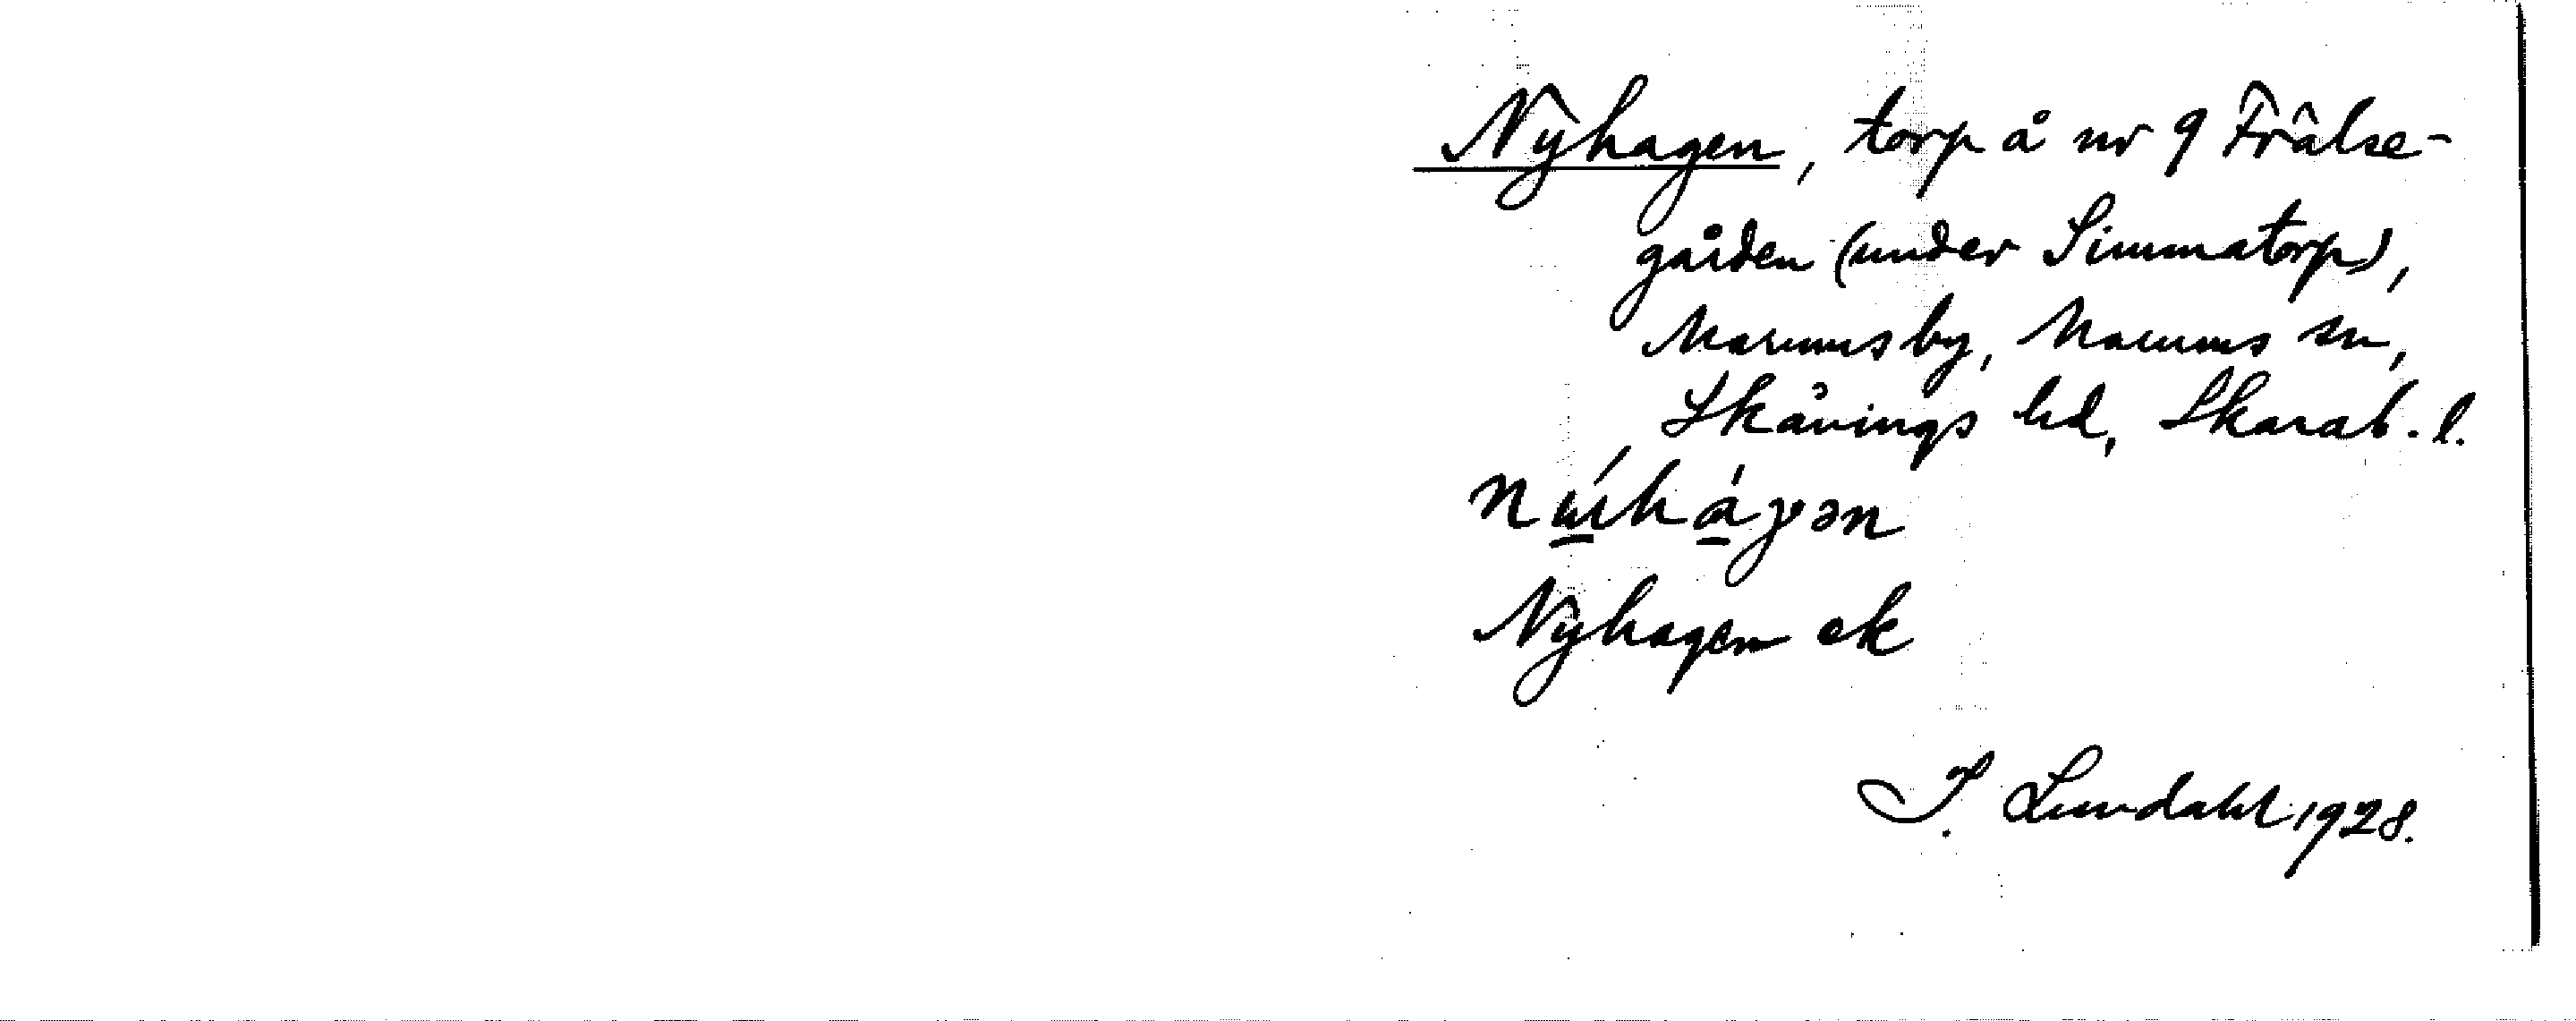 Nyhagen, torp å nr 9 Frälse-
gården (under Simmatorp),
Marums by, Marums sn,
Skånings hd, Skarab. l.
Nyhagen ek
I. Lundahl 1928.